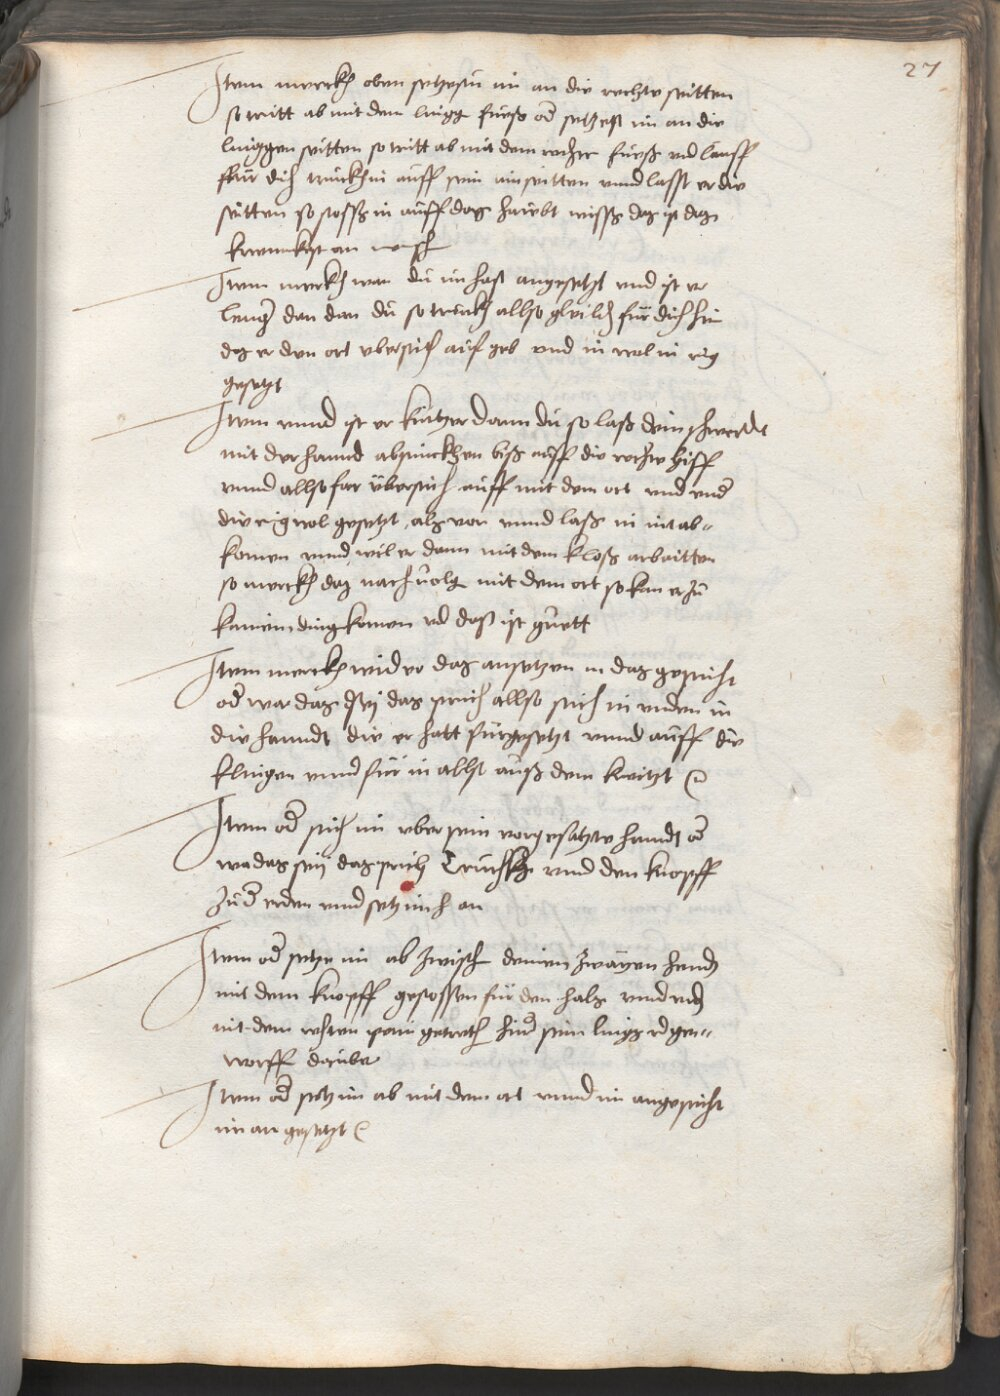 27
Item merckh oben setzestu im an die rechte seitten
so tritt ab mit dem lingg fueß od setzest im an die
linggen seitten so tritt ab mit dem rechte fueß vnd lauff
für dich truckh in auff sein seitten vnnd lasst er die
seitten so stosß in auff das haubt wisß das ist das
an
Item merckh wan du im hast angesetzt vnd ist er
lenger dan dan du so truckh allso gleich für dich hin
das er den ort vbersich auf geb vnd in wol in rig
gesetzt
Item vnnd ist er kurtzer dann du so laß dein schwerdt
mit der hannd absinckhen biß auff die rechte hiff
vnnd allso far übersich auff mit dem ort vnd vnd
die rig wol gesetzt als vor vnnd laß in nit ab-
komen vnnd wil er dann mit dem kloß arbaitten
so merckh das nach volg mit dem ort so kan er zu
kainem ding komen vnd daß ist guett
Item merckh wid er das ansetzen in das gesicht
od war das sey das sprich allso stich in vnden in
die handt die er hatt fürgesetzt vnnd auff die
klingen vnnd für in allso auß dem kreitzt
Item od stich im vber sein vorgesatzte handt od
wa das sey das sprich truckh vnnd den knopff
zu d erden vnnd setz im h an
Item od setze im ab zwisch deinen zwayen hend
mit dem knopff gestossen für den hals vnnd vnd
mit dem rechten pain getreth hind sein lings vd gen-
worff darüber
Item od setz im ab mit dem ort vnnd im angesicht
im an gesetzt